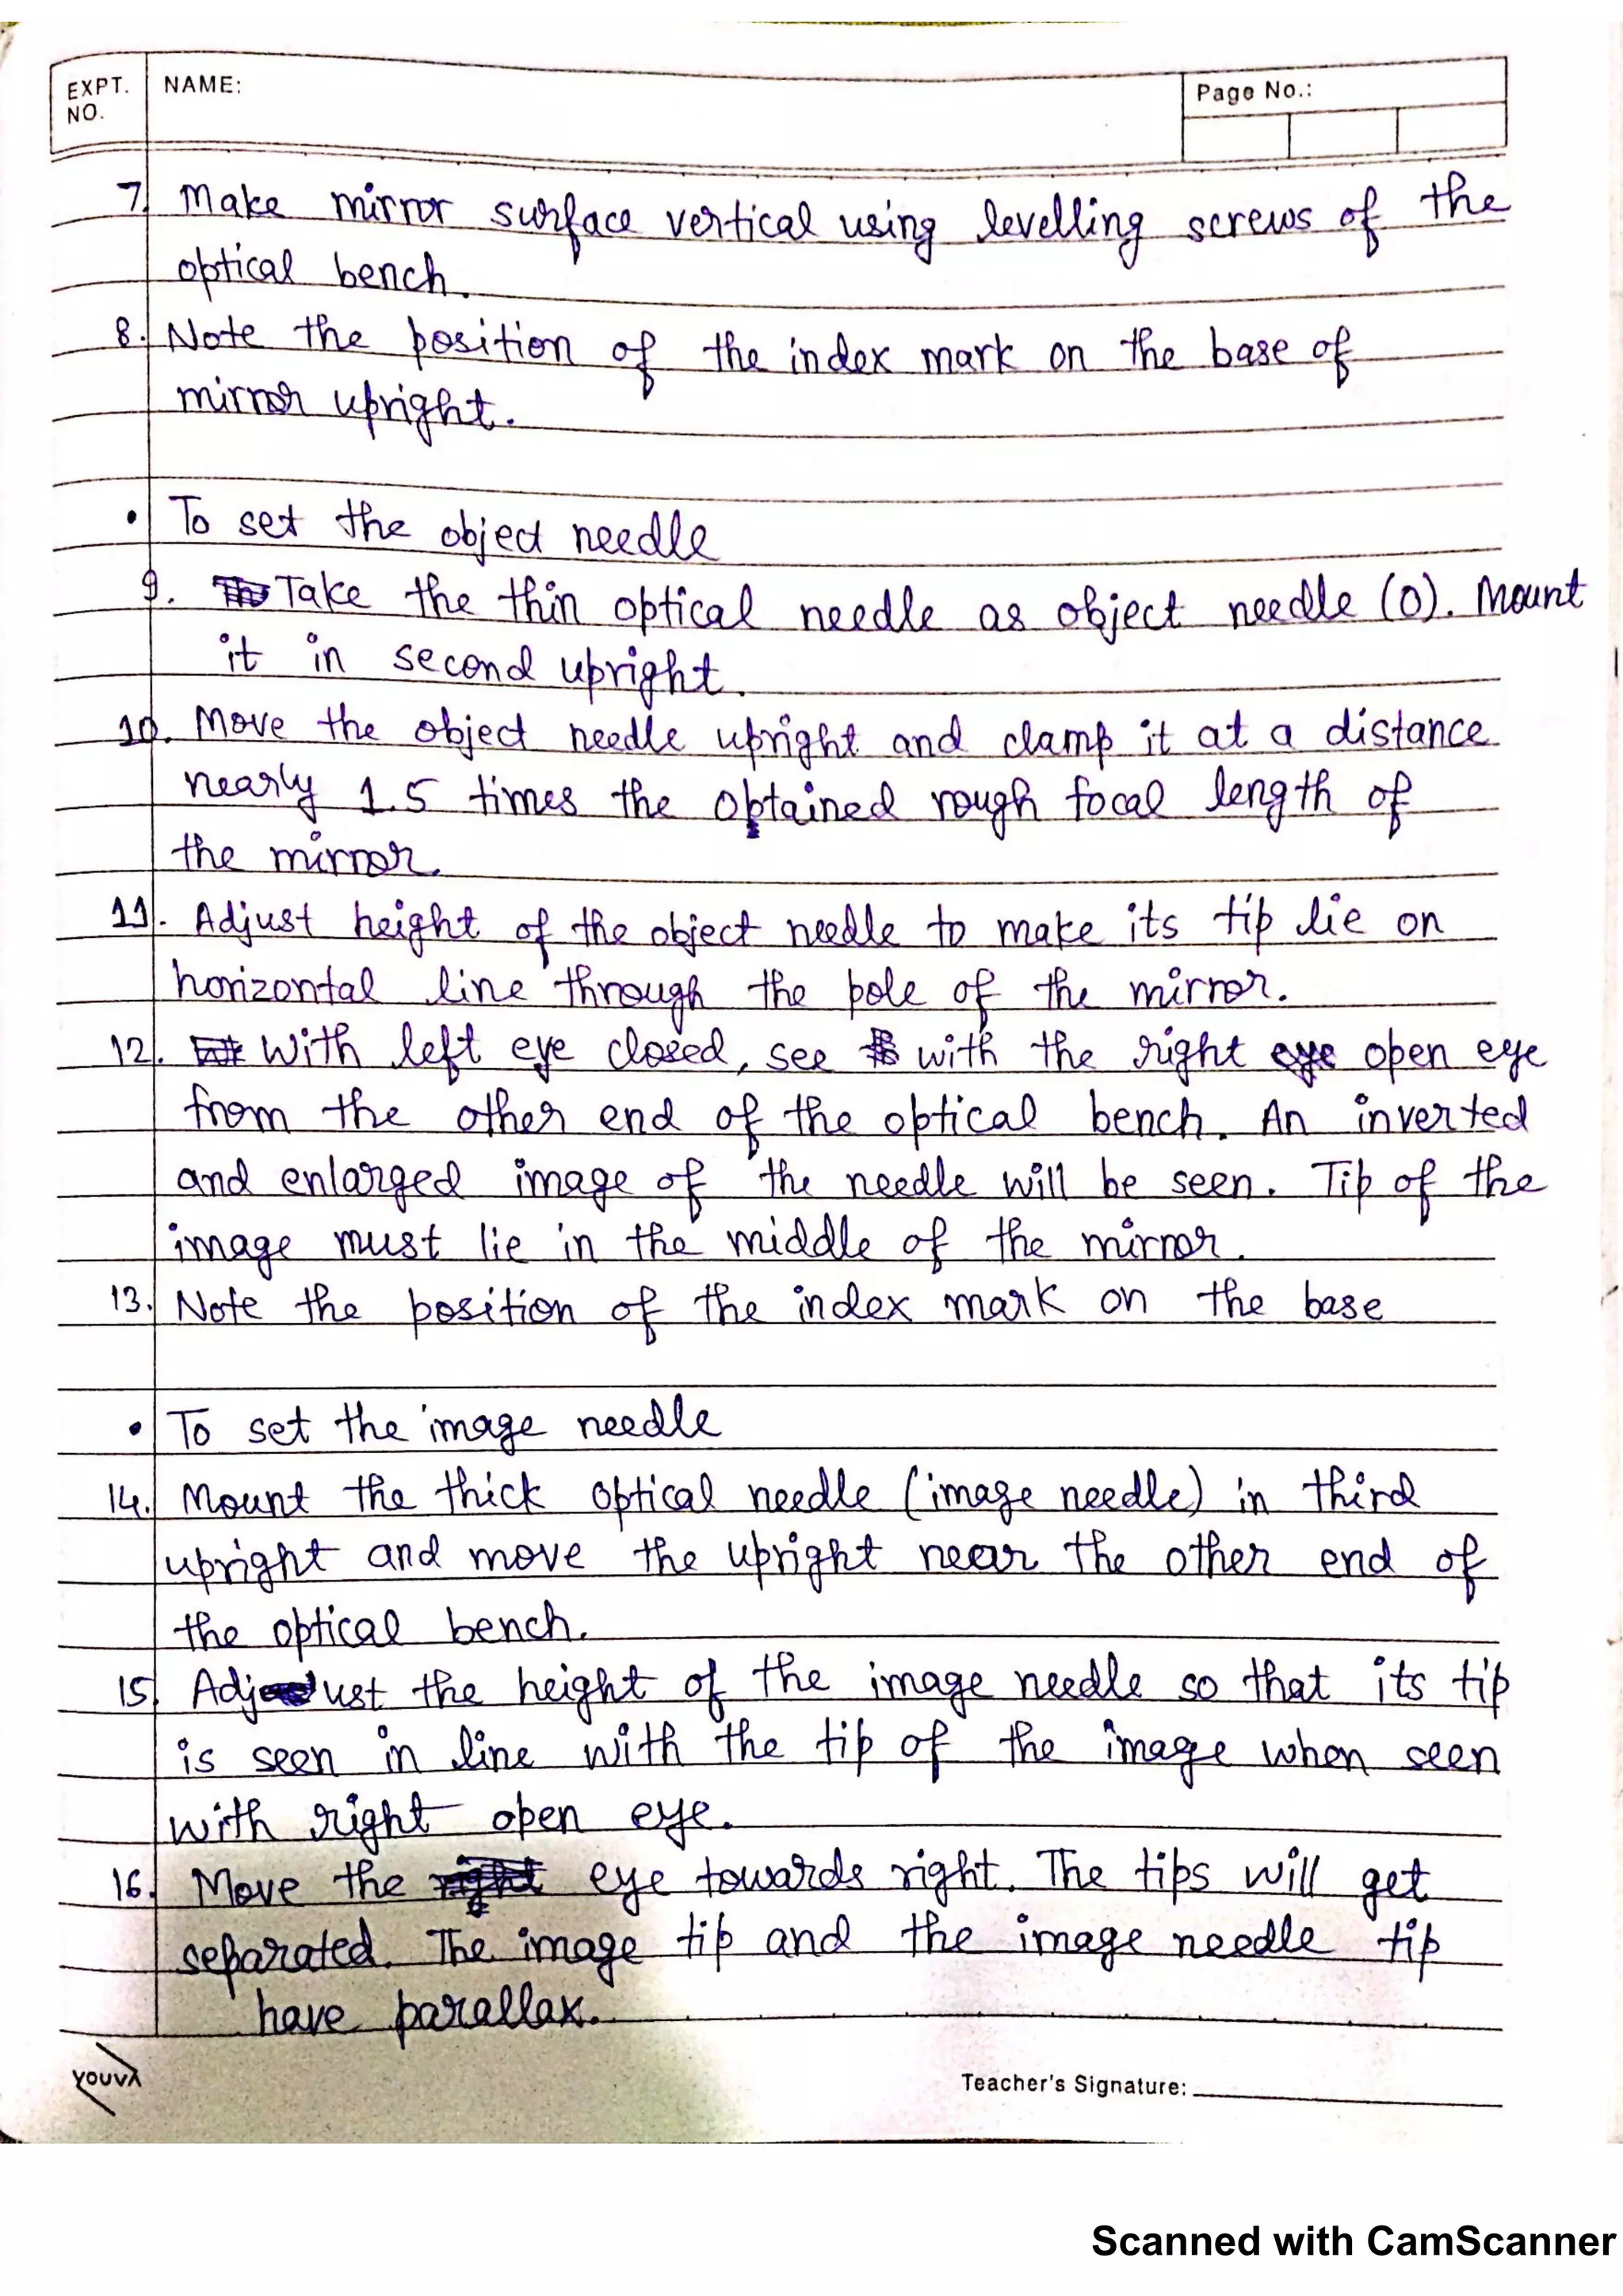 EXPT. NO.
NAME:
Page No.:
7. Make mirror surface vertical using levelling screws of the
optical bench.
8. Note the position of the index mark on the base of
mirror upright.
• To set the object needle
9. Take the thin optical needle as object needle (O). Mount
it in second upright.
10. Move the object needle upright and clamp it at a distance
nearly 1.5 times the obtained rough focal length of
the mirror.
11. Adjust height of the object needle to make its tip lie on
horizontal line through the pole of the mirror.
12. With left eye closed, see with the right open eye
from the other end of the optical bench. An inverted
and enlarged image of the needle will be seen. Tip of the
image must lie in the middle of the mirror.
13. Note the position of the index mark on the base
• To set the image needle
14. Mount the thick optical needle (image needle) in third
upright and move the upright near the other end of
the optical bench.
15. Adjust the height of the image needle so that its tip
is seen in line with the tip of the image when seen
with right open eye.
16. Move the eye towards right. The tips will get
separated. The image tip and the image needle tip
have parallax.
YOUVA
Teacher's Signature:
Scanned with CamScanner